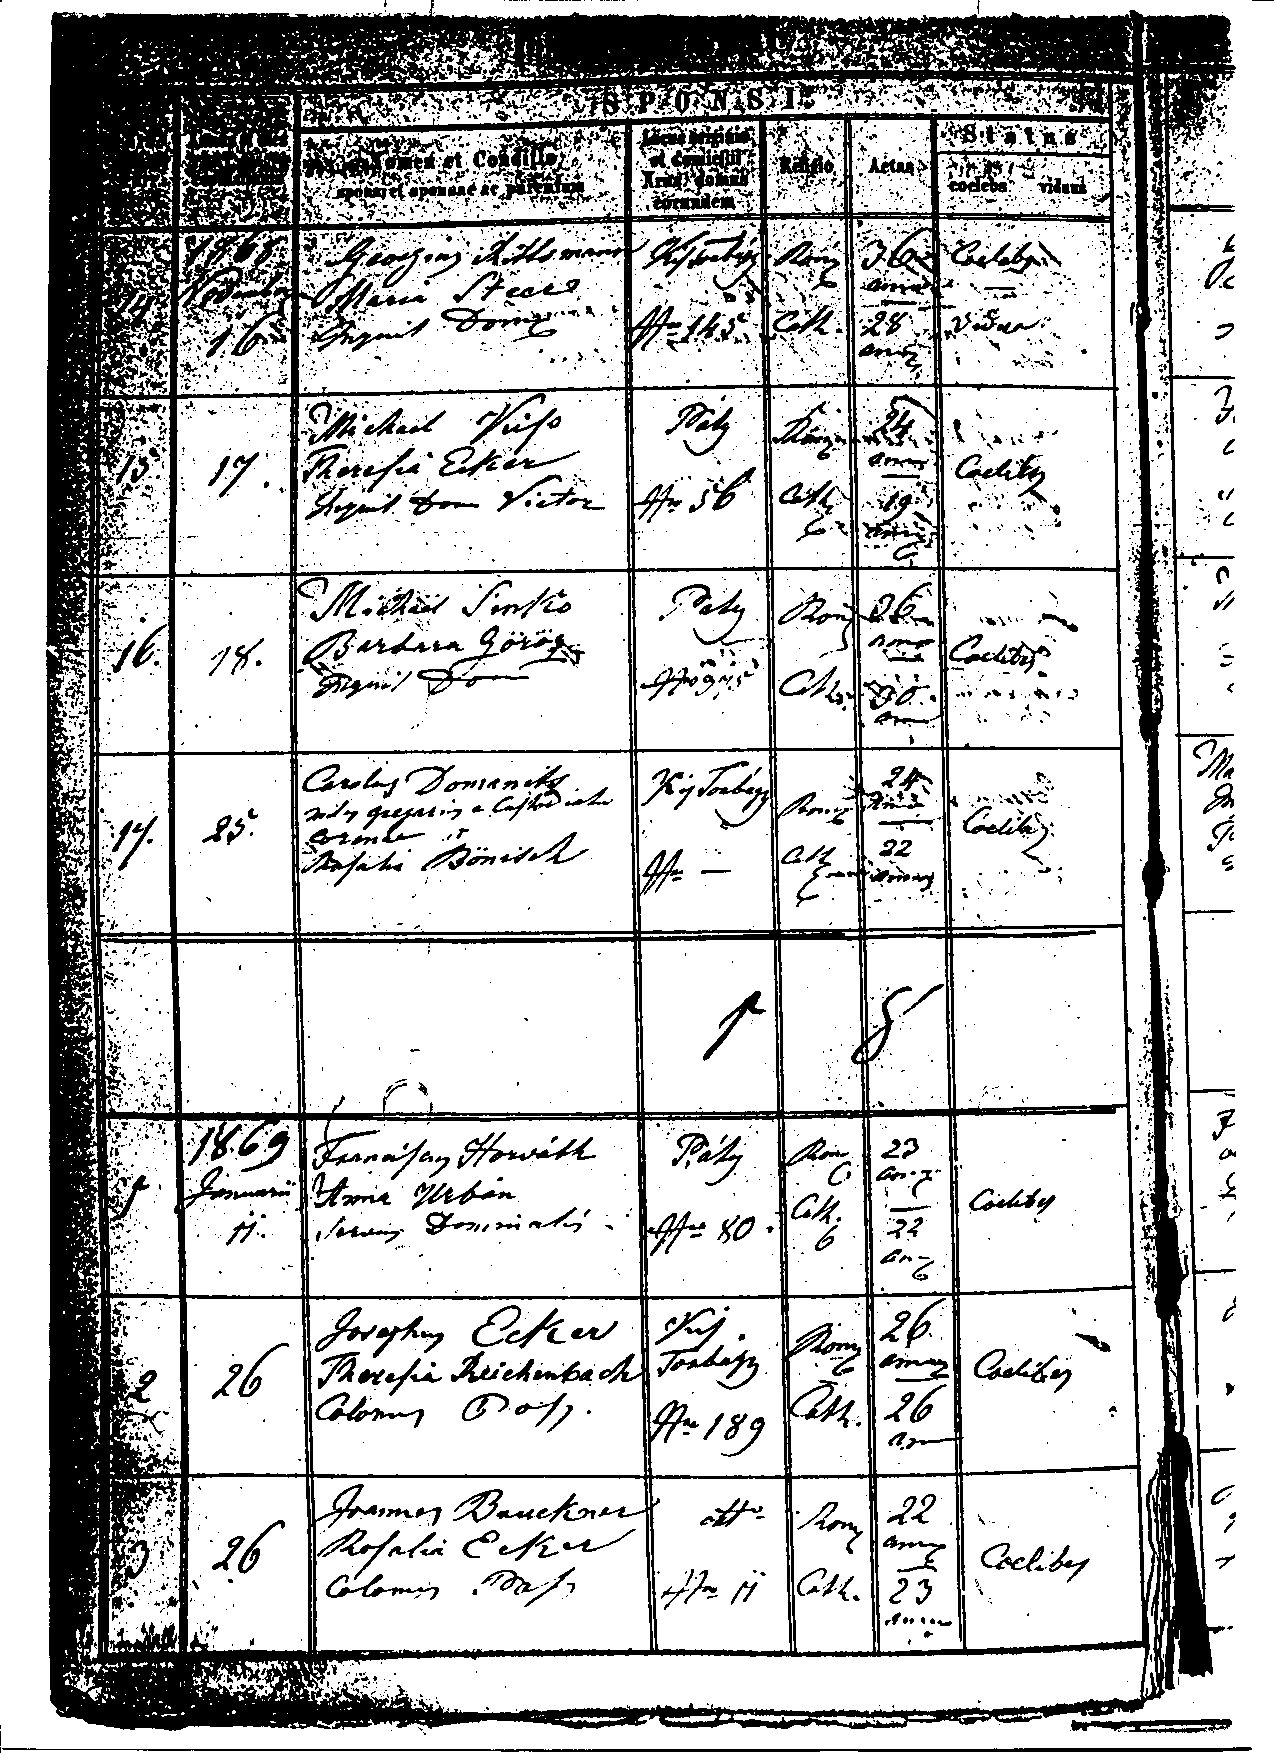 SPONSI
Nomen et Conditio
sponsi et sponsae ac parentum
Locus originis
et domicilii
Nrus domus
eorundem
Religio
Aetas
Status
coelebs viduus
14.
1868
Novembris
16
Georgius
Maria
Inquil Dom
Kis Torbágy
Nro 145
Rom
Cath.
36
anno
28
anno
Coelebs
Vidua
15.
17.
Michael
Theresia Ecker
Inquil Dom Victor
Páty
Nro 56
Rom
Cath
24
anno
19
anno
Coelibes
16.
18.
Michael Sinko
Barbara Görög
Inquil Dom
Páty
Nro
Rom
Cath.
36
anno
30.
ann
Coelibes
17.
25.
Carolus Domanitzky
miles gregarius a Custodiate
coronae
Rosalia Bönisch
Kis Torbágy
Nro —
Rom
Cath
24
22
annor
Coelibes
1
1869
Januarii
11.
Franciscus Horváth
Anna Urbán
Servus Dominalis
Páty
Nro 80.
Rom
Cath.
23
an
22
an
Coelibes
2
26
Josephus Ecker
Theresia Reichenbach
Colonus Poss.
Kis
Torbágy
Nro 189
Rom
Cath.
26
annor
26
ann
Coelibes
3
26
Joannes Bruckner
Rosalia Ecker
Colonus Poss
Nro 11
Rom
Cath.
22
annor
23
annor
Coelibes